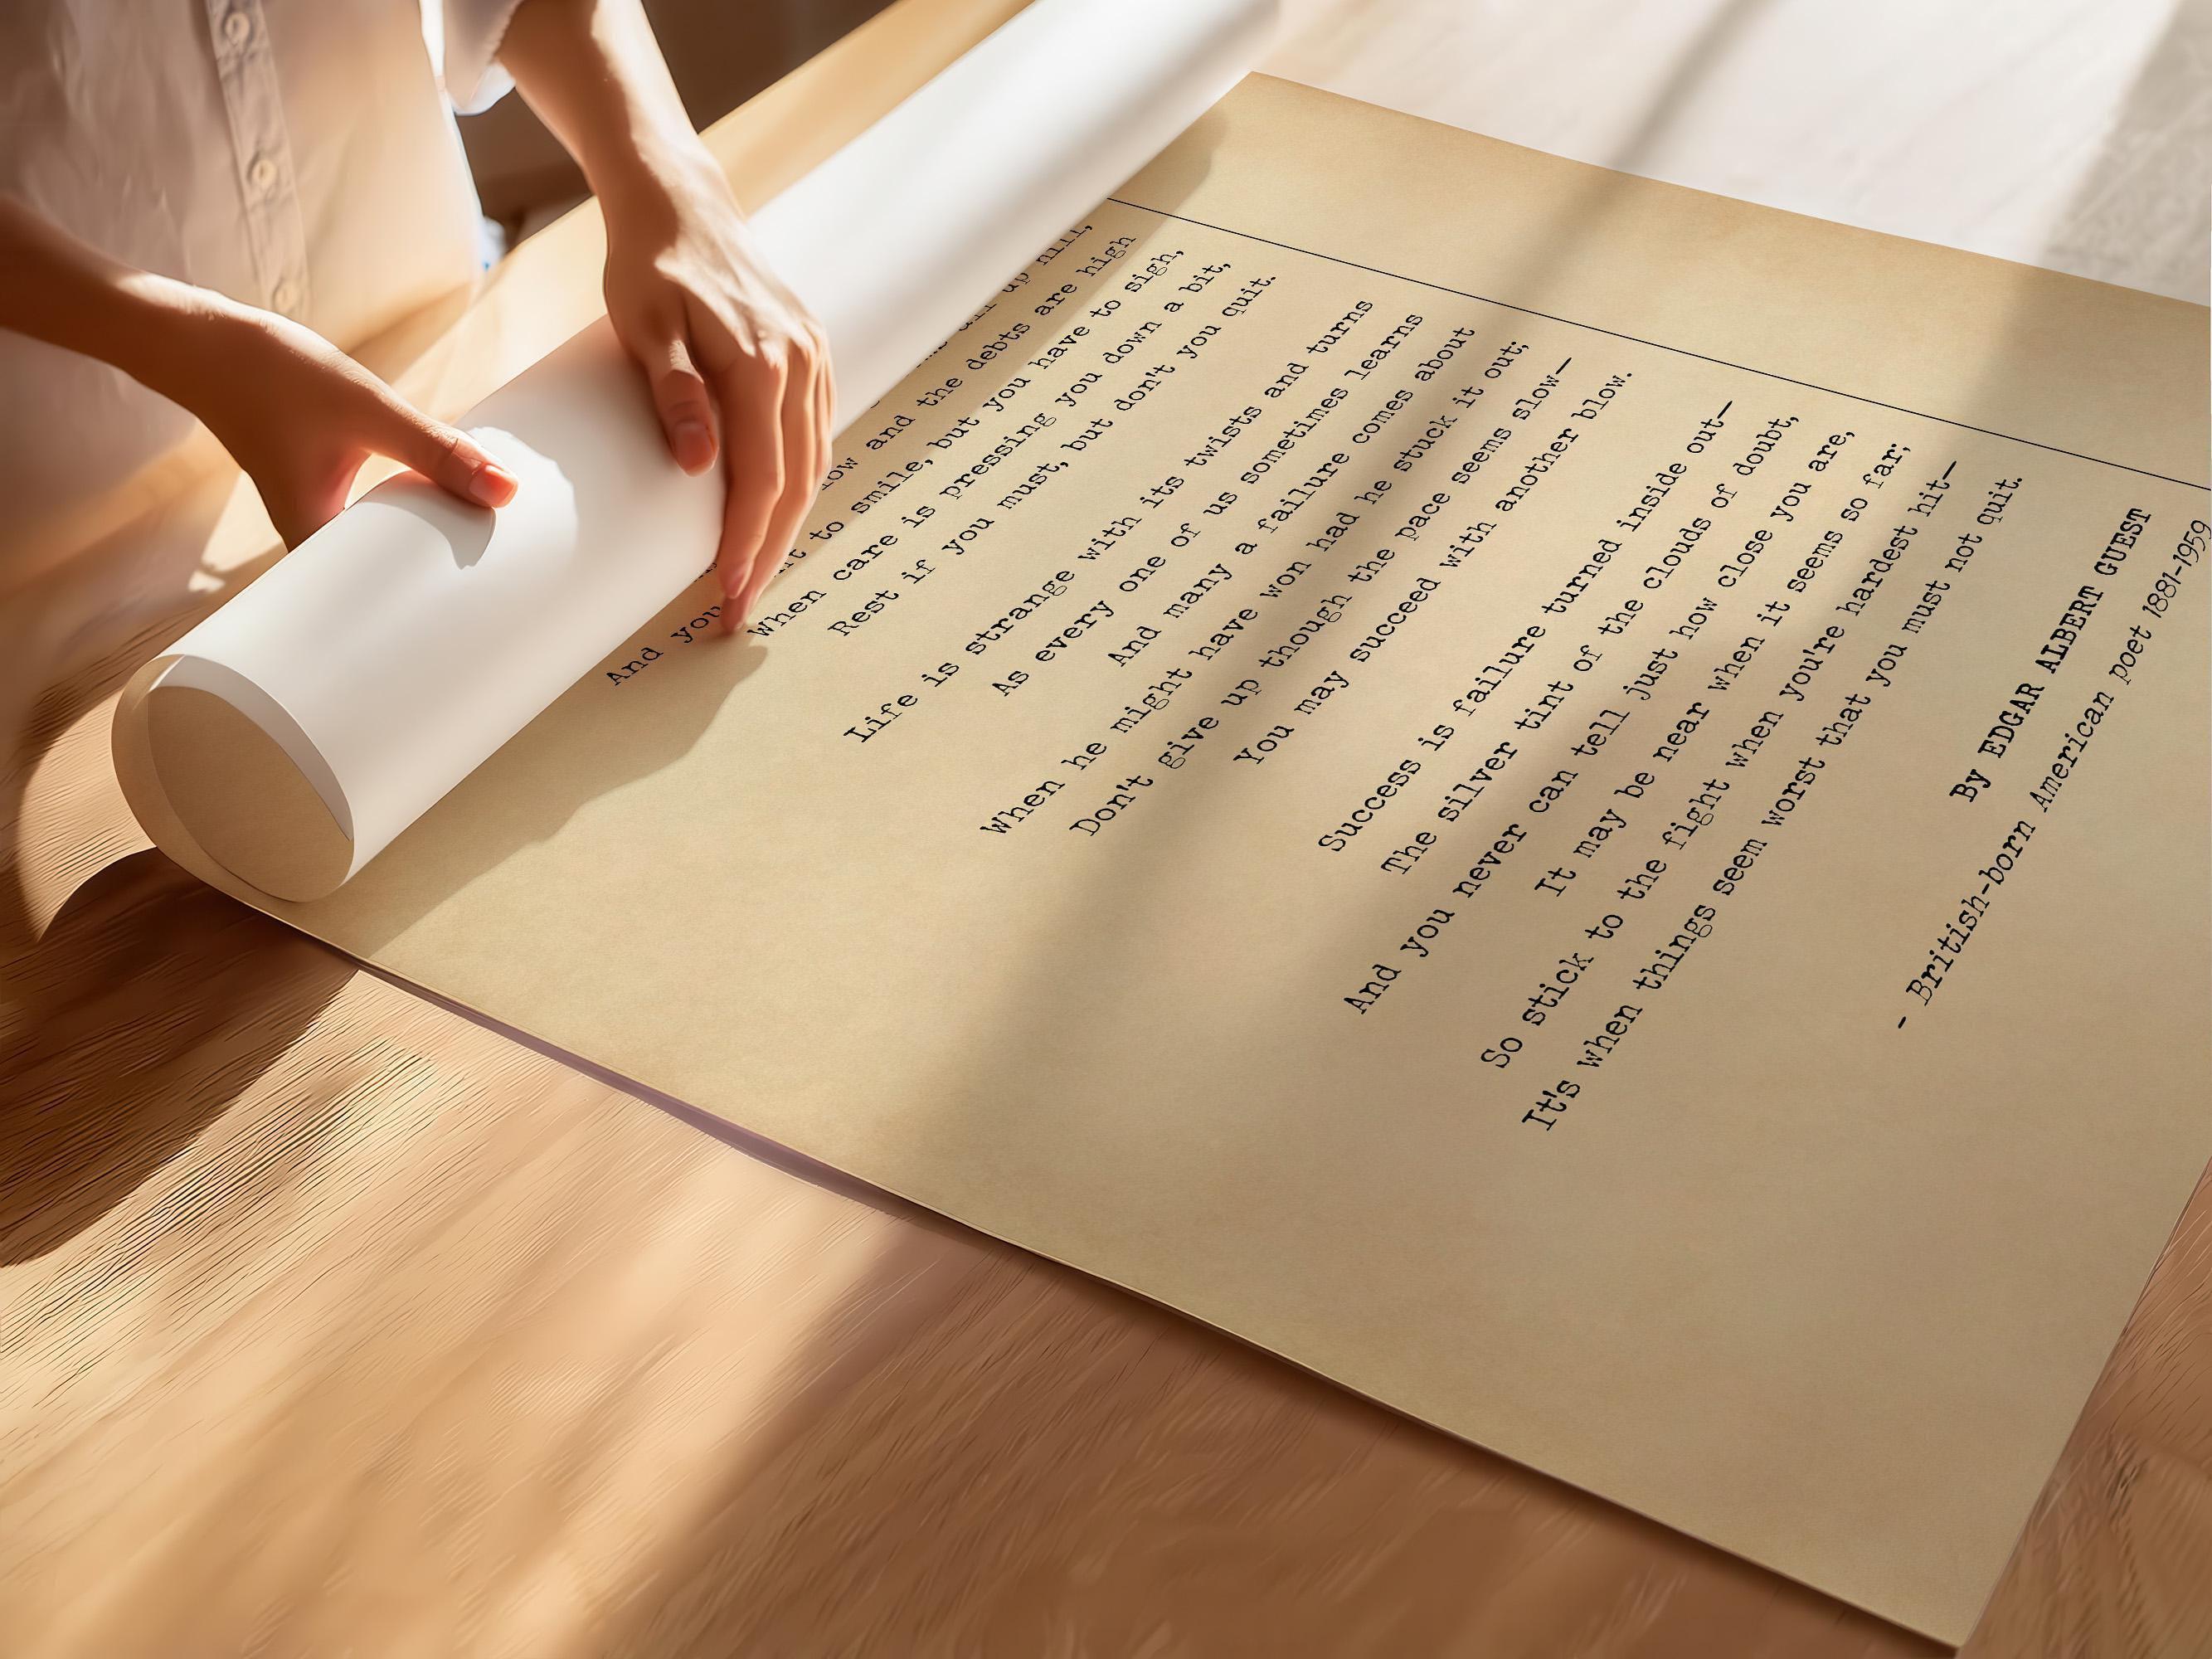 up hill,
and the debts are high
And you to smile, but you have to sigh,
When care is pressing you down a bit,
Rest if you must, but don't you quit.
Life is strange with its twists and turns
As every one of us sometimes learns
And many a failure comes about
When he might have won had he stuck it out;
Don't give up though the pace seems slow—
You may succeed with another blow.
Success is failure turned inside out—
The silver tint of the clouds of doubt,
And you never can tell just how close you are,
It may be near when it seems so far;
So stick to the fight when you're hardest hit—
It's when things seem worst that you must not quit.
By EDGAR ALBERT GUEST
- British-born American poet 1881-1959